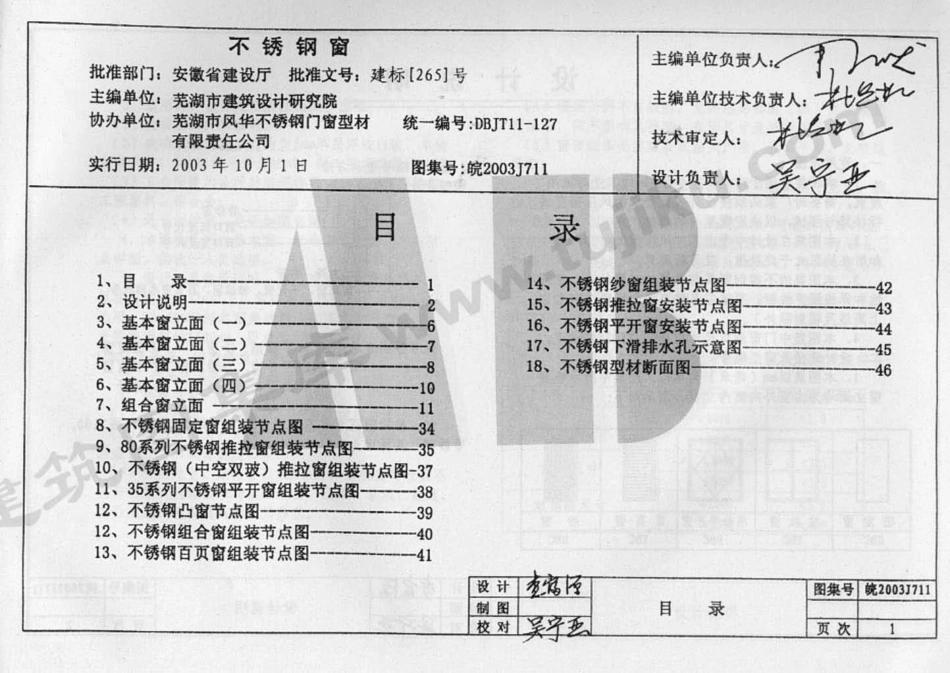 不锈钢窗
批准部门：安徽省建设厅 批准文号：建标[265]号
主编单位：芜湖市建筑设计研究院
协办单位：芜湖市风华不锈钢门窗型材 统一编号:DBJT11-127
有限责任公司
实行日期：2003年10月1日 图集号:皖2003J711
主编单位负责人:
主编单位技术负责人:
技术审定人:
设计负责人: 吴宁燕
目 录
1、目 录 1
2、设计说明 2
3、基本窗立面（一） 6
4、基本窗立面（二） 7
5、基本窗立面（三） 8
6、基本窗立面（四） 10
7、组合窗立面 11
8、不锈钢固定窗组装节点图 34
9、80系列不锈钢推拉窗组装节点图 35
10、不锈钢（中空双玻）推拉窗组装节点图-37
11、35系列不锈钢平开窗组装节点图 38
12、不锈钢凸窗节点图 39
12、不锈钢组合窗组装节点图 40
13、不锈钢百页窗组装节点图 41
14、不锈钢纱窗组装节点图 42
15、不锈钢推拉窗安装节点图 43
16、不锈钢平开窗安装节点图 44
17、不锈钢下滑排水孔示意图 45
18、不锈钢型材断面图 46
设计
制图
校对
目 录
图集号 皖2003J711
页次 1
www.tujiku.com